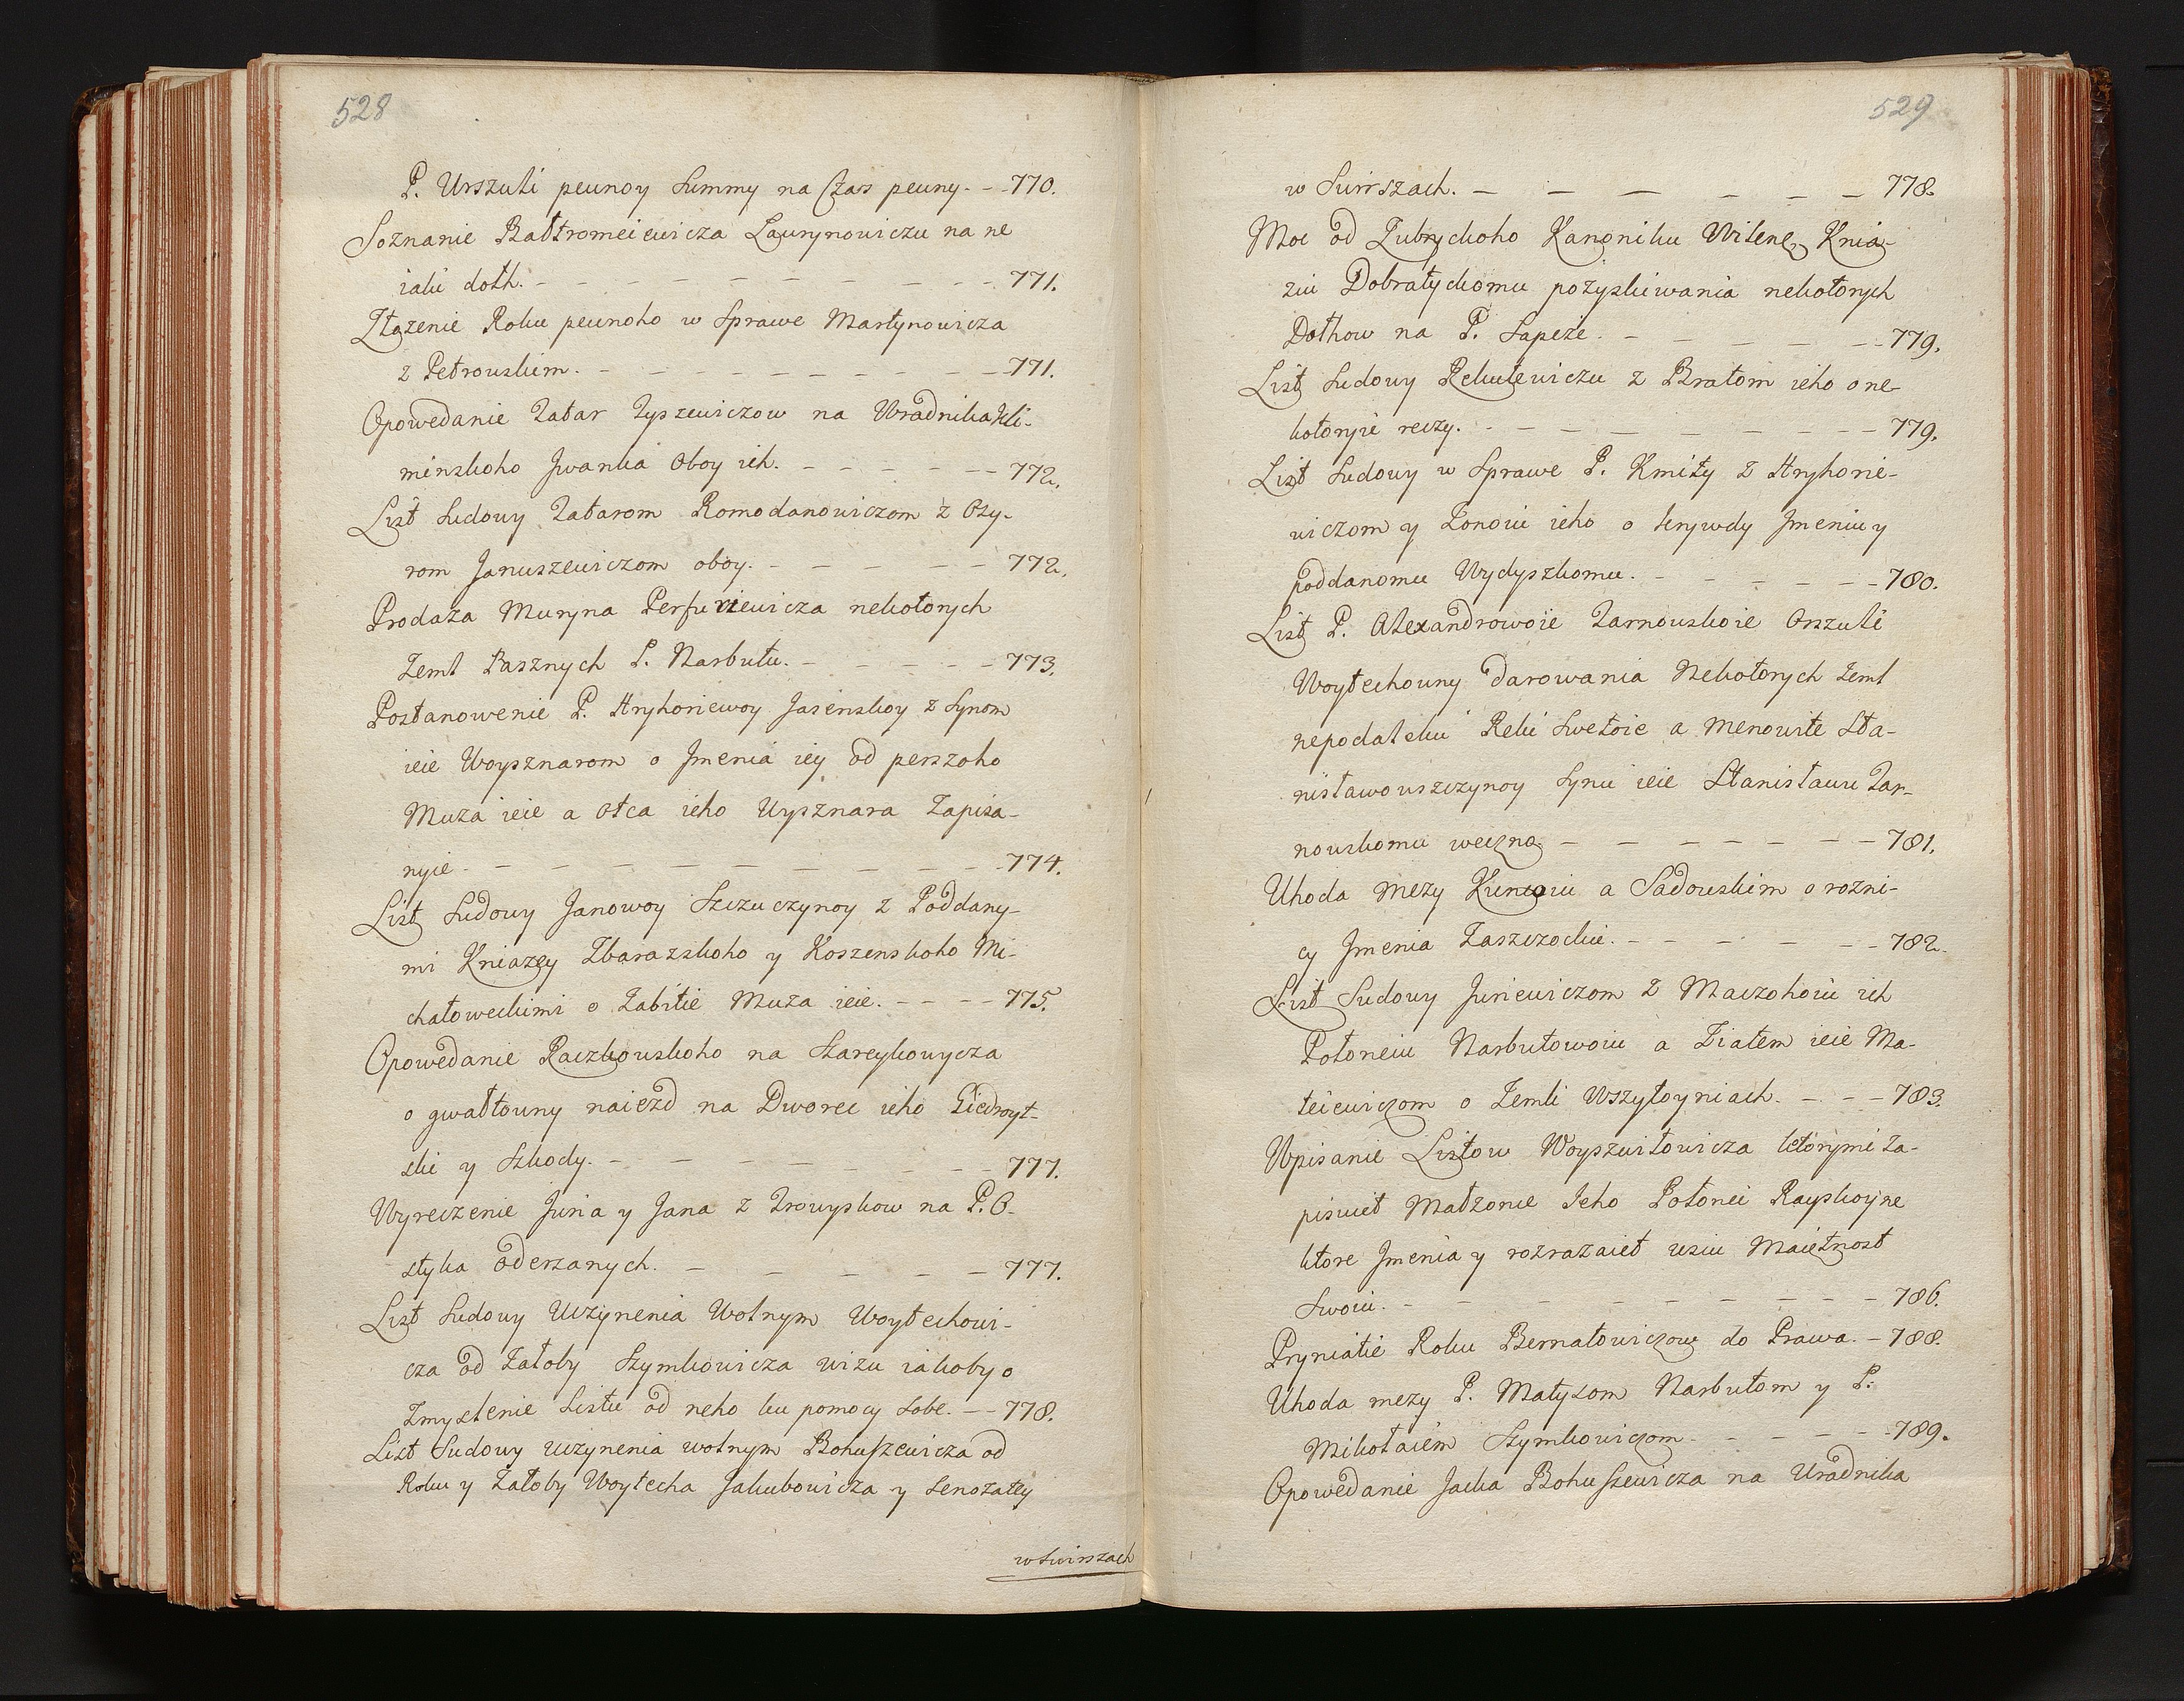 528
P. Urszuli peunoy Summy na Czas peuny. - - 770.
Soznanie Bałtromeiewicza Laurynowiczu na ne
iaki dołh. - - - - - - - - - - 771.
Złożenie Roku peunoho w Sprawe Martynowicza
z Petrouskim. - - - - - - - - - 771.
Opowedanie Tatar Tyszewiczow na Uradnika Kli-
minskoho Iwanka Oboy ich. - - - - - - 772.
List Sudowy Tatarom Romodanowiczom z Osy-
rom Januszewiczom oboy. - - - - - 772.
Prodaża Muryna Perfuriewicza nekotorych
Zeml Pasznych P. Narbutu. - - - - - 773.
Postanowenie P. Hryhoriewoy Jasenskoy z Synom
ieie Woysznarom o Jmenia iey od perszoho
Muża ieie a otca ieho Uysznara Zapisa-
nyie. - - - - - - - - - 774.
List Sudowy Janowoy Szczuczynoy z Poddany-
mi Kniazey Zbarazskoho y Koszenskoho Mi-
chałoweckimi o Zabitie Muża ieie. - - - - 775.
Opowedanie Raczkouskoho na Szareykowycza
o gwałtouny naiezd na Dworec ieho Giedroyt-
ski y Szkody. - - - - - - - - 777.
Wyreczenie Juria y Jana z Trowyskow na P. O-
styka Oderzanych. - - - - - 777.
List Sudowy Uczynenia Wolnym Woytechowi-
cza od Załoby Szymkowicza wizu iakoby o
Zmyslenie Listu od neho ku pomocy Sobe. - - 778.
List Sudowy uczynenia wolnym Bohuszewicza od
Roku y Załoby Woytecha Jakubowicza y Senożatey
w Swirszach
529
w Swirszach. - - - - - - 778.
Moc od Zubryckoho Kanoniku Wilene, Knia-
ziu Dobratyckomu pozyskiwania nekotorych
Dołhow na P. Sapeże. - - - - - - 779.
List Sudowy Rekutewiczu z Bratom ieho o ne-
kotoryie reczy. - - - - - - - - - 779.
List Sudowy w Sprawe P. Kmity z Hryhorie-
wiczom y Żonoiu ieho o krywdy Jmeniu y
poddanomu Wydyszkomu. - - - - - - 780.
List P. Alexandrowoie Tarnouskoie Orszuli
Woytechouny Darowania Nekotorych Zeml
nepodaleku Reki Swetoie a Menowite Sta-
nisławouszczynoy Synu ieie Stanisławu Tar-
nouskomu weczno. - - - - - - - 781.
Uhoda Mezy Kuncoiu a Sadouskim o rozni-
cy Jmenia Zaszczockie. - - - - - - 782.
List Sudowy Juriewiczom z Maczohoiu ich
Połoneiu Narbutowoiu a Ziatem ieie Ma-
teiewiczom o Zemli Uszytoyniach. - - - - 783.
Wpisanie Listow Woyszwiłowicza ktorymi Za-
pisuiet Małżonce Ieho Połonei Rayskoy ne
ktore Jmenia y rozrazaiet usiu Maietnost
Swoiu. - - - - - - - - - 786.
Pryniatie Roku Bernatowiczow do Prawa. - 788.
Uhoda mezy P. Matysom Narbutom y P.
Mikołaiem Szymkowiczom. - - - - - 789.
Opowedanie Jacka Bohuszewicza na Uradnika